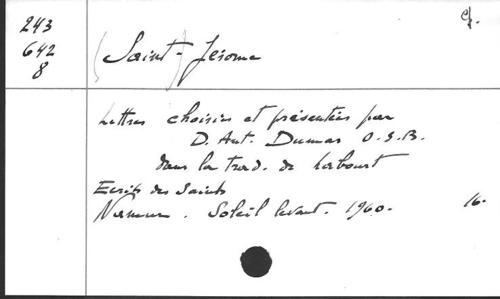 243
642
8
cf.
(Saint) Jérome
Lettres choisies et présentées par
D. Ant. Dumas O.S.B.
dans la trad. de Labourt
Ecrits des Saints
Namur. Soleil levant. 1960. 16.